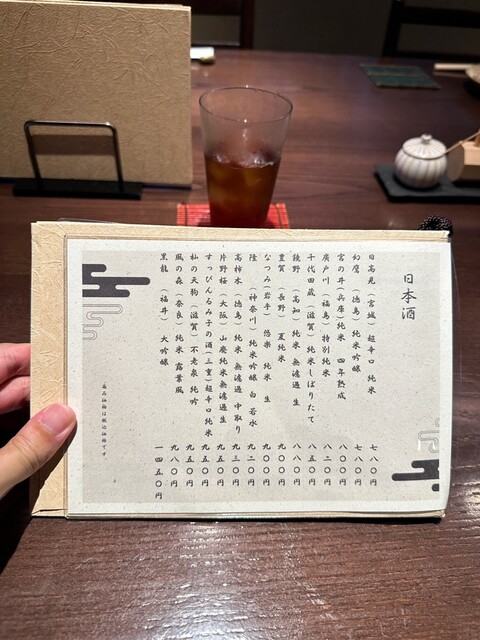 日本酒
日高見（宮城）超辛口 純米 七八〇円
幻鷹（徳島）純米吟醸 七八〇円
宮の井（兵庫）純米 四年熟成 八〇〇円
廣戸川（福島）特別純米 八二〇円
千代田蔵（滋賀）純米しぼりたて 八五〇円
綾野（高知）純米 無濾過 生 八八〇円
豊賀（長野）夏純米 九〇〇円
なつみ（岩手）悠楽 純米 生 九〇〇円
隆（神奈川）純米吟醸 白 若水 九二〇円
高柿木（徳島）純米 無濾過 中取り 九三〇円
片野桜（大阪）山廃純米無濾過生 九五〇円
すっぴんるみ子の酒（三重）超辛口純米 九五〇円
杣の天狗（滋賀）不老泉 純吟 九五〇円
風の森（奈良）純米 露葉風 九八〇円
黒龍（福井）大吟醸 一四五〇円
商品価格は税込価格です。